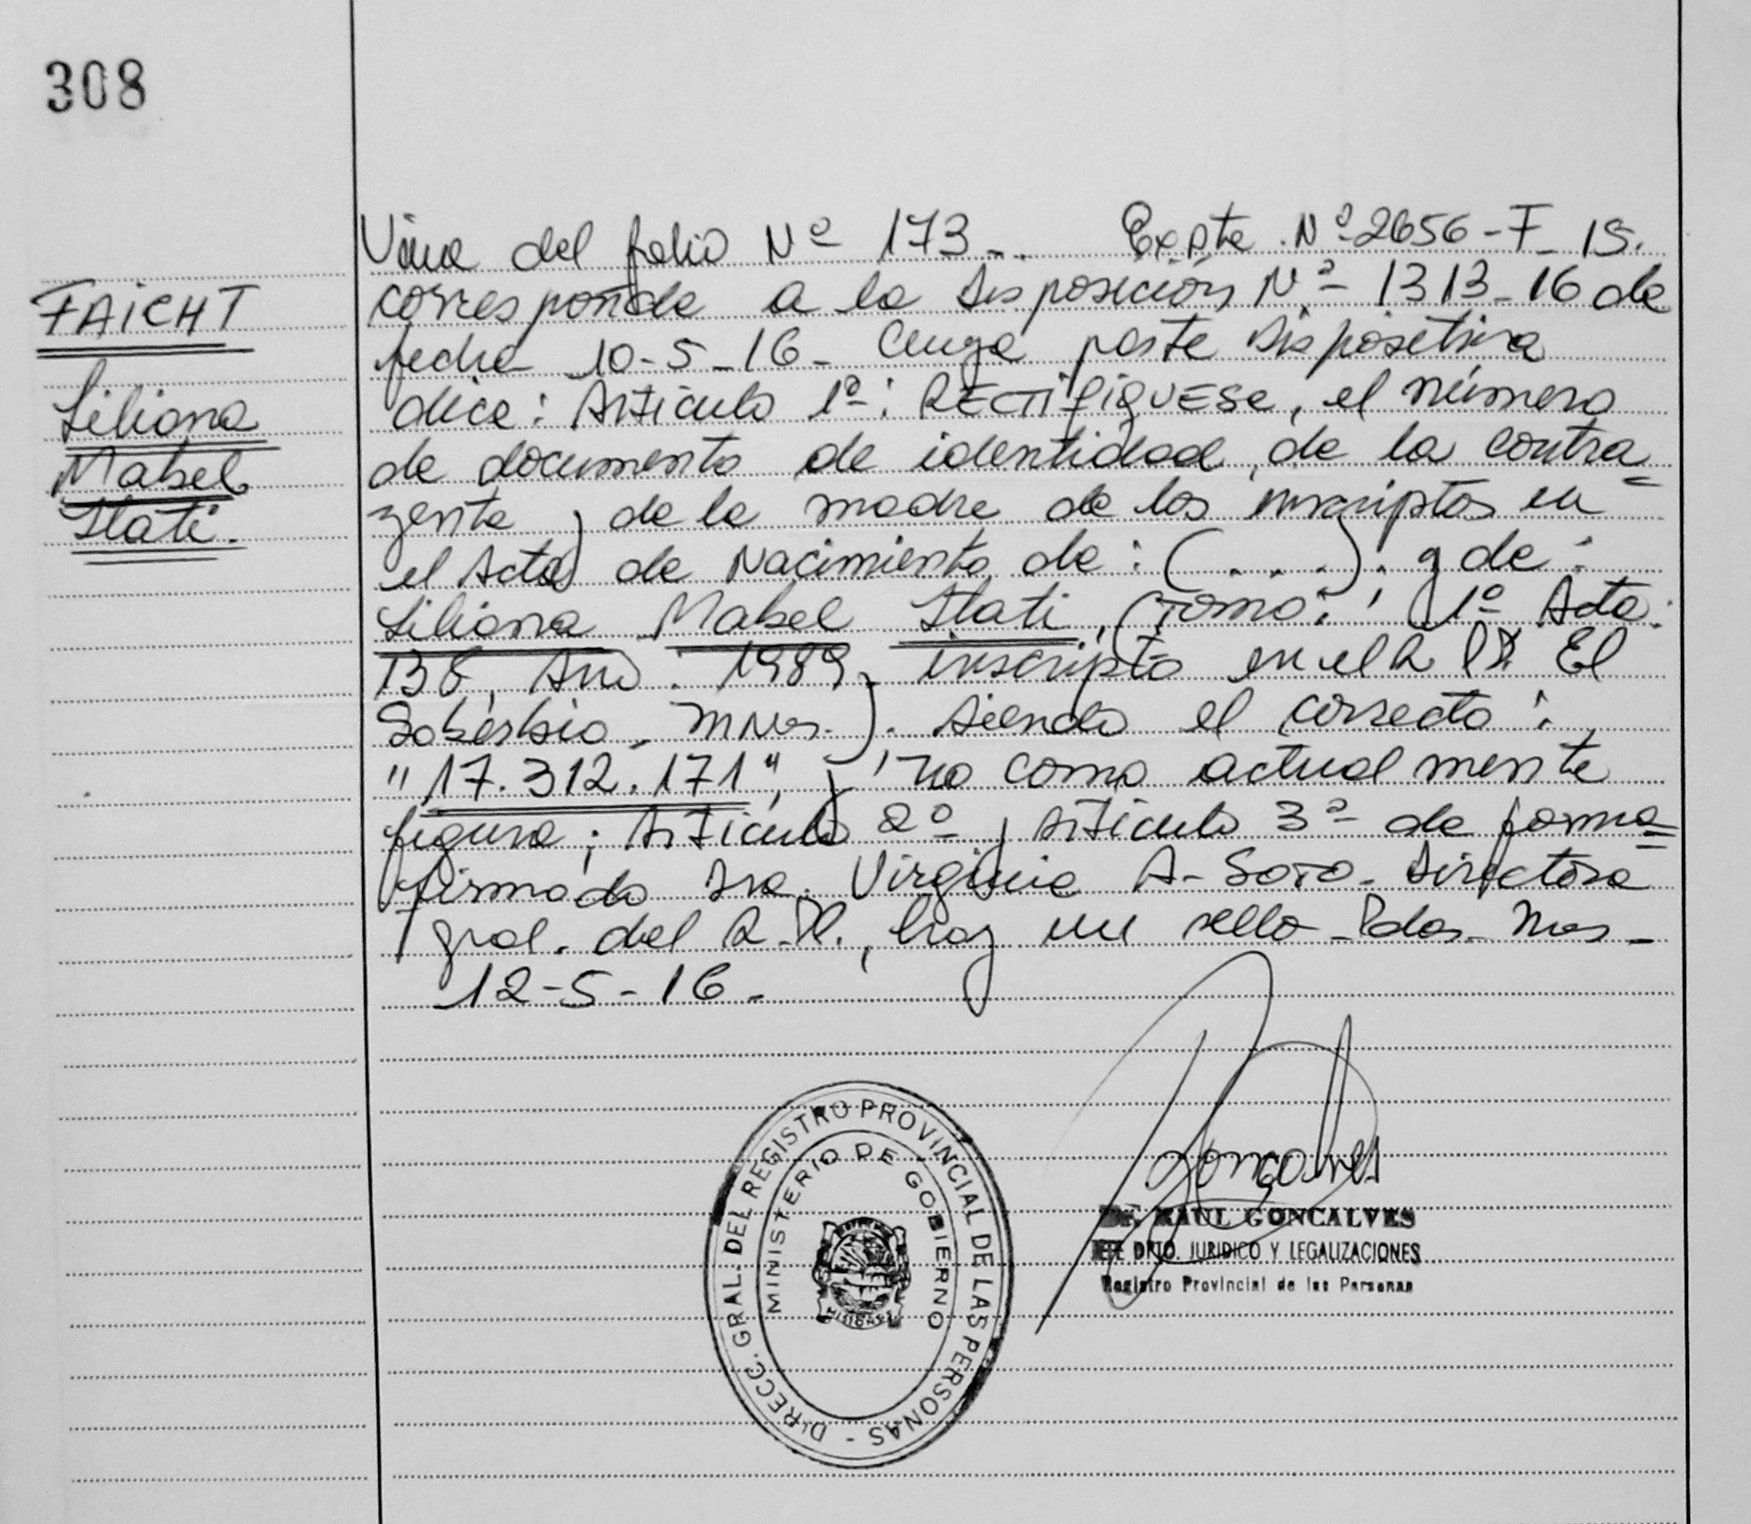 308
FAICHT
Liliana
Mabel
Itati.
Viene del folio Nº 173-. Expte. Nº 2656-F-15.
corresponde a la Disposición Nº 1313-16 de
fecha 10-5-16- Cuya parte dispositiva
dice: Artículo 1º: RECTIFIQUESE, el número
de documento de identidad, de la contra=
yente y de la madre de los inscriptos en
el Acta de Nacimiento de: (....). y de:
Liliana Mabel Itati, (Tomo: 1º Acta:
138, Año. 1989, inscripto en el R.P. El
Soberbio, Mnes.). siendo el correcto:
"17.312.171", y no como actualmente
figura; Artículo 2º y Artículo 3º de forma=
firmado Sra. Virginia A. SOTO- Directora
gral. del R.P., hay un sello-Pdas. Mnes-
12-5-16.
DIRECC. GRAL. DEL REGISTRO PROVINCIAL DE LAS PERSONAS -
MINISTERIO DE GOBIERNO
MISIONES
Goncalves
RAUL GONCALVES
DPTO. JURIDICO Y LEGALIZACIONES
Registro Provincial de las Personas